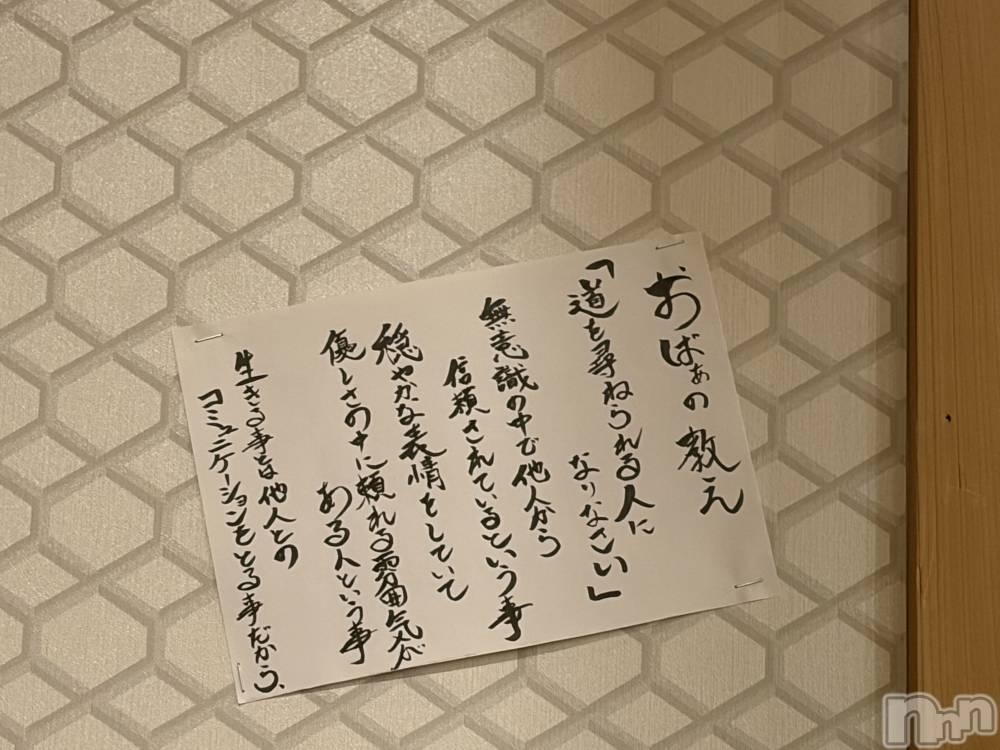 おばぁの教え
「道を尋ねられる人に
なりなさい」
無意識の中で他人から
信頼されているという事
穏やかな表情をしていて
優しさの中に頼れる雰囲気が
ある人という事
生きる事は他人との
コミュニケーションをとる事だから、
nnn